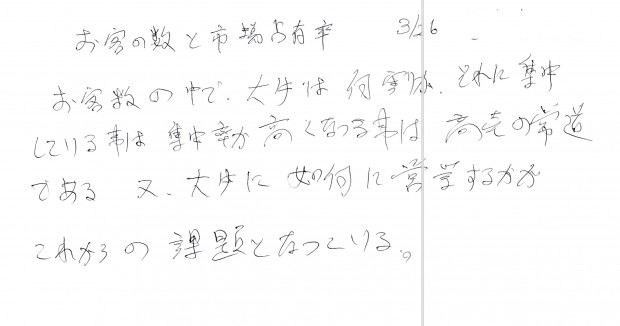 お客の数と市場占有率 3/26
お客数の中で、大手は何割か、それに集中
している事は集中率が高くなる事は商売の常道
である 又、大手に如何に営業するかが
これからの課題となっている。